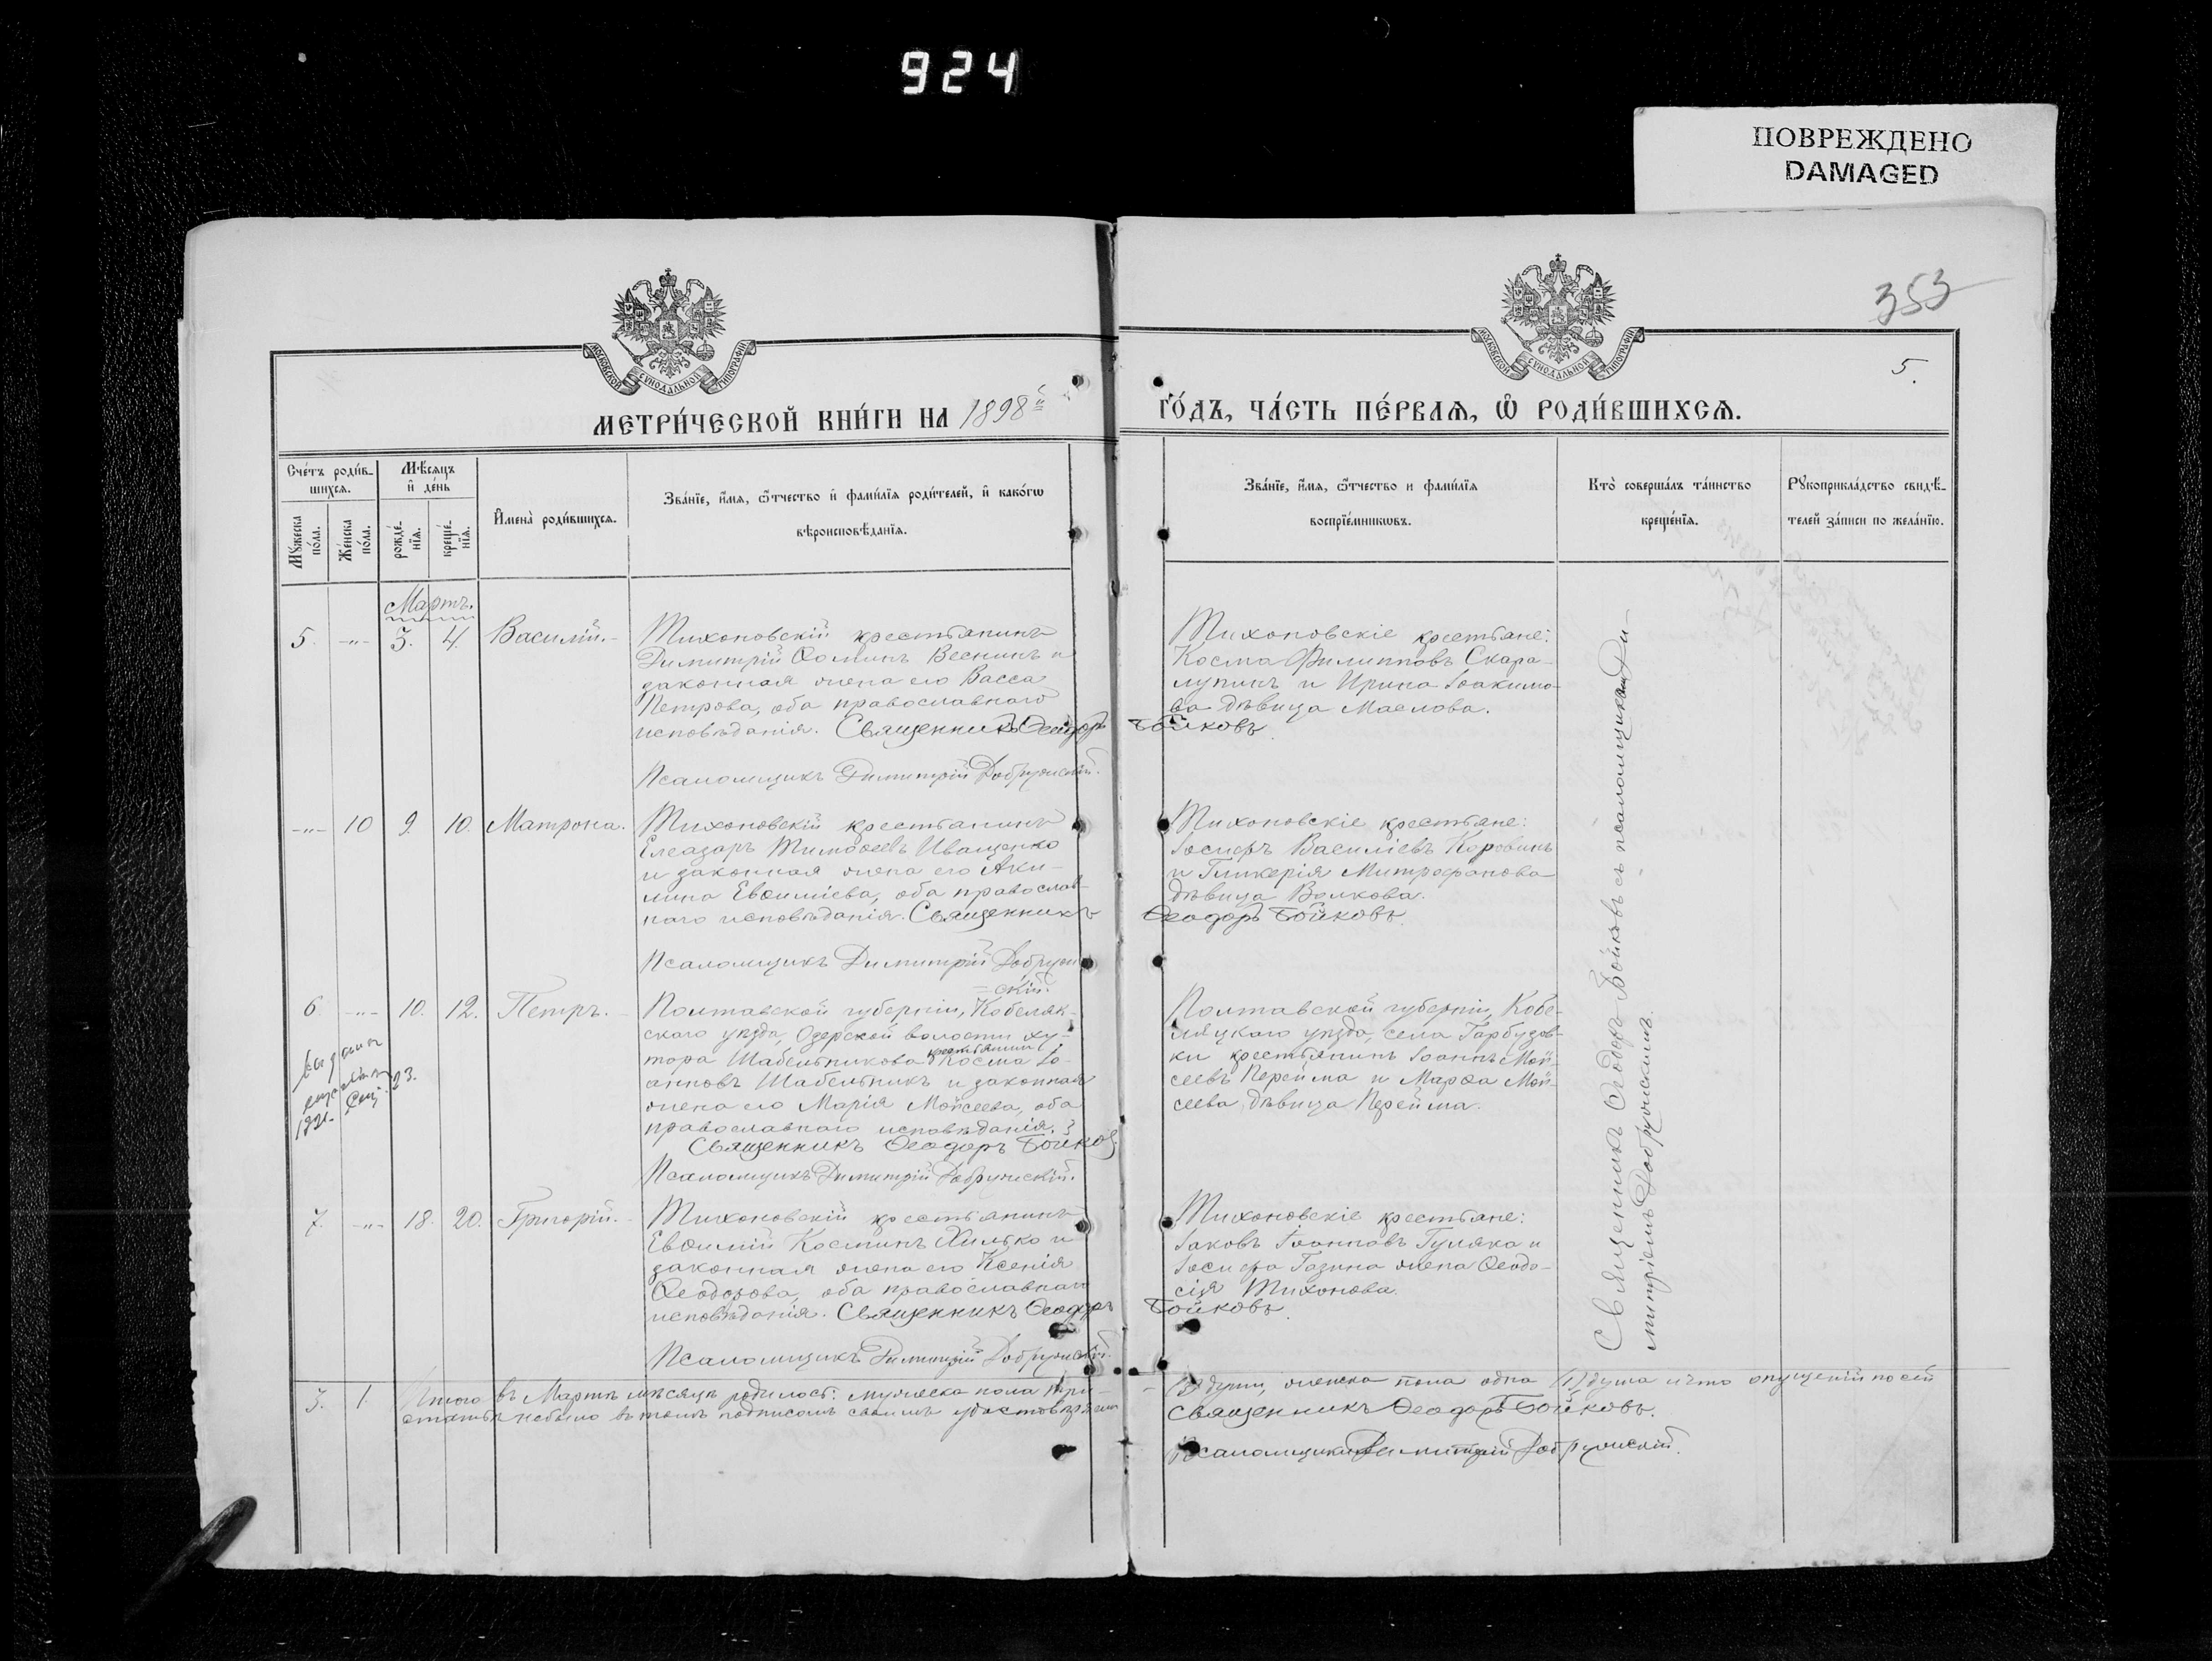 924
ПОВРЕЖДЕНО
DAMAGED
353
5.
МОСКОВСКОЙ СУНОДАЛЬНОЙ ТИПОГРАФІИ
МОСКОВСКОЙ СУНОДАЛЬНОЙ ТИПОГРАФІИ
МЕТРИ́ЧЕСКОЙ КНИ́ГИ НА 1898й
ГО́ДЪ, ЧА́СТЬ ПЕ́РВАѦ, Ѡ РОДИ́ВШИХСѦ.
Сче́тъ роди́в-
шихсѧ.
Мѣ́сѧцъ
и҆ де́нь
Мꙋ́жеска
по́ла.
Же́нска
по́ла.
рожде́-
нїѧ.
креще́-
нїѧ.
И҆мена̀ роди́вшихсѧ.
Зва́нїе, и҆́мѧ, ѻ҆́тчество и҆ фами́лїѧ роди́телей, и҆ како́гѡ
вѣроисповѣ́данїѧ.
Зва́нїе, и҆́мѧ, ѻ҆́тчество и фами́лїѧ
воспрїе́мникѡвъ.
Кто̀ соверша́лъ та́инство
креще́нїѧ.
Рꙋкоприкла́дство свидѣ́-
телей за́писи по жела́нїю.
Мартъ.
5. -"- 3. 4. Василій.-
Тихоновскій крестьянинъ
Димитрій Ѳоминъ Веснинъ и
законная жена его Васса
Петрова, оба православнаго
исповѣданія. Священникъ Ѳеодоръ Бойковъ
Псаломщикъ Димитрій Добружскій.
Тихоновскіе крестьяне:
Косма Филипповъ Скара-
лупинъ и Ирина Іоакимо-
ва дѣвица Маслова.
-"- 10 9. 10. Матрона.
Тихоновскій крестьянинъ
Елеазаръ Тимоѳеевъ Иващенко
и законная жена его Аки-
лина Евѳиміева, оба православ-
наго исповѣданія. Священникъ Ѳеодоръ Бойковъ.
Псаломщикъ Димитрій Добруж-
=скій.
Тихоновскіе крестьяне:
Іосифъ Василіевъ Коровинъ
и Гликерія Митрофанова
дѣвица Волкова.
6. -"- 10. 12. Петръ.-
Выдана
1921. 23.
Полтавской губерніи, Кобеляк-
скаго уѣзда, Озерской волости ху-
тора Шабельникова крестьянинъ Косма Іо-
анновъ Шабельникъ и законная
жена его Марія Моѵсеева, оба
православнаго исповѣданія.
Священникъ Ѳеодоръ Бойковъ.
Псаломщикъ Димитрій Добружскій.
Полтавской губерніи, Кобе-
ляцкаго уѣзда, села Гарбузов-
ки крестьянинъ Іоаннъ Мой-
сеевъ Перейма и Марѳа Мой-
сеева дѣвица Перейма.
7. -"- 18. 20. Григорій.-
Тихоновскій крестьянинъ
Евѳимій Косминъ Хилько и
законная жена его Ксенія
Ѳеодорова, оба православнаго
исповѣданія. Священникъ Ѳеодоръ Бойковъ.
Псаломщикъ Димитрій Добружскій.
Тихоновскіе крестьяне:
Іаковъ Іоанновъ Гуляка и
Іосифа Газина жена Ѳеодо-
сія Тихонова.
Священникъ Ѳеодоръ Бойковъ съ псаломщикомъ Ди-
митріемъ Добружскимъ.
3. 1. Итого въ Мартѣ мѣсяцѣ родилось: мужеска пола три - (3) души, женска пола одна (1) душа и что опущеній по сей
статьи небыло въ томъ подписомъ своимъ удостовѣряемъ
Священникъ Ѳеодоръ Бойковъ.
Псаломщикъ Димитрій Добружскій.